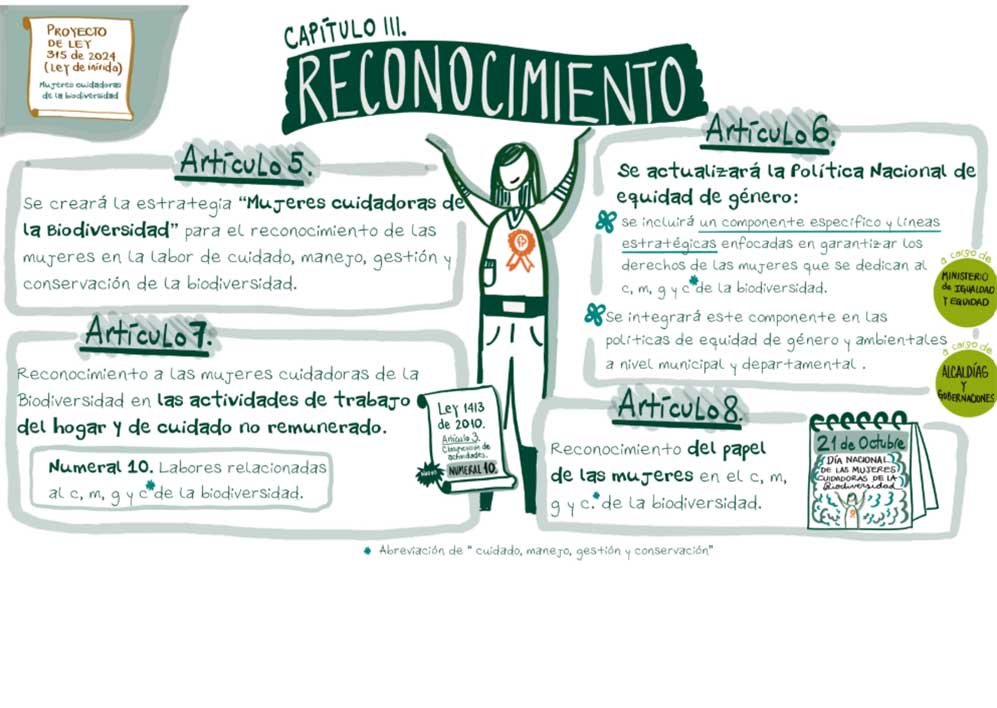 PROYECTO
DE LEY
315 de 2024
(Ley de inírida)
Mujeres cuidadoras
de la biodiversidad
CAPÍTULO III.
RECONOCIMIENTO
Artículo 5.
Se creará la estrategia "Mujeres cuidadoras de
la Biodiversidad" para el reconocimiento de las
mujeres en la labor de cuidado, manejo, gestión y
conservación de la biodiversidad.
Artículo 6.
Se actualizará la Política Nacional de
equidad de género:
se incluirá un componente específico y líneas
estratégicas enfocadas en garantizar los
derechos de las mujeres que se dedican al
c, m, g y c* de la biodiversidad.
a cargo de
MINISTERIO
de IGUALDAD
Y EQUIDAD
Se integrará este componente en las
políticas de equidad de género y ambientales
a nivel municipal y departamental.
a cargo de
ALCALDÍAS
Y
GOBERNACIONES
Artículo 7.
Reconocimiento a las mujeres cuidadoras de la
Biodiversidad en las actividades de trabajo
del hogar y de cuidado no remunerado.
Numeral 10. Labores relacionadas
al c, m, g y c* de la biodiversidad.
Ley 1413
de 2010.
Artículo 3.
actividades.
NUMERAL 10.
Artículo 8.
Reconocimiento del papel
de las mujeres en el c, m,
g y c.* de la biodiversidad.
21 de Octubre
DÍA NACIONAL
DE LAS MUJERES
CUIDADORAS DE LA
Biodiversidad
* Abreviación de " cuidado, manejo, gestión y conservación"